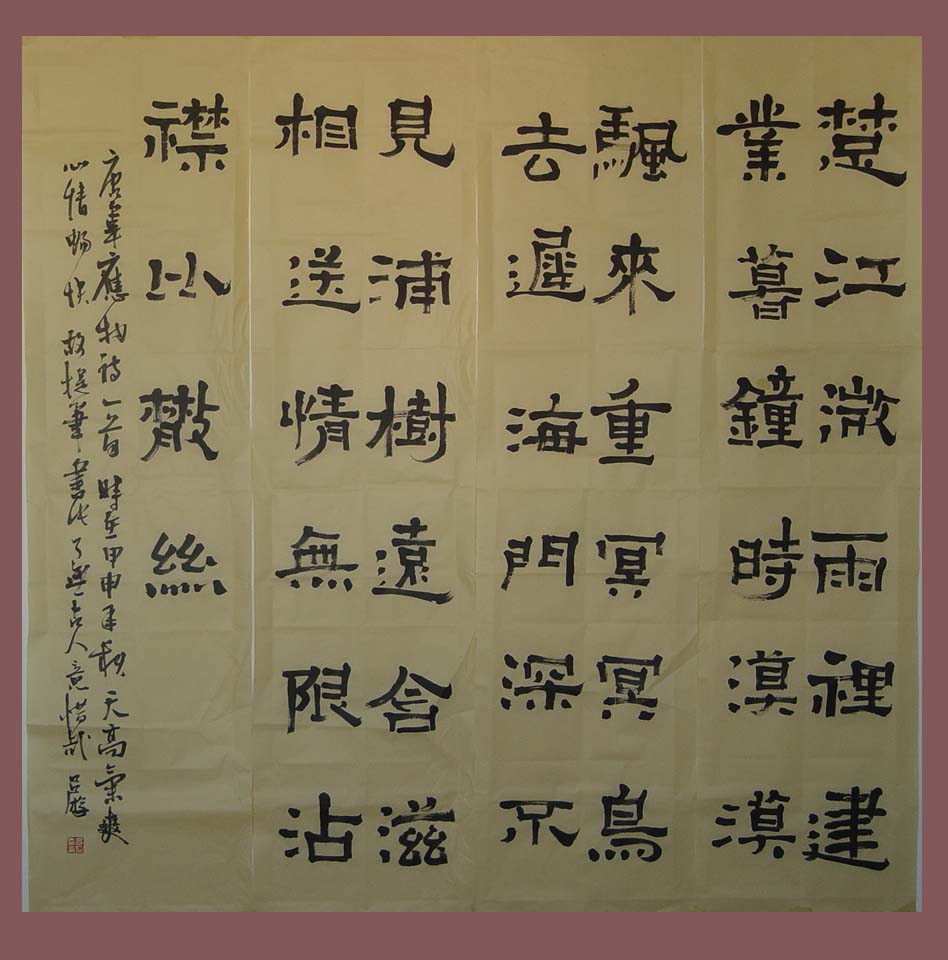 楚江溦雨裡建
業暮鐘時漠漠
颿來重冥冥鳥
去遲海門深不
見浦樹遠含滋
相送情無限沾
襟比散絲
唐韋應物詩一首時在甲申年秋天高氣爽
心情暢快故提筆書此了無古人意惜哉